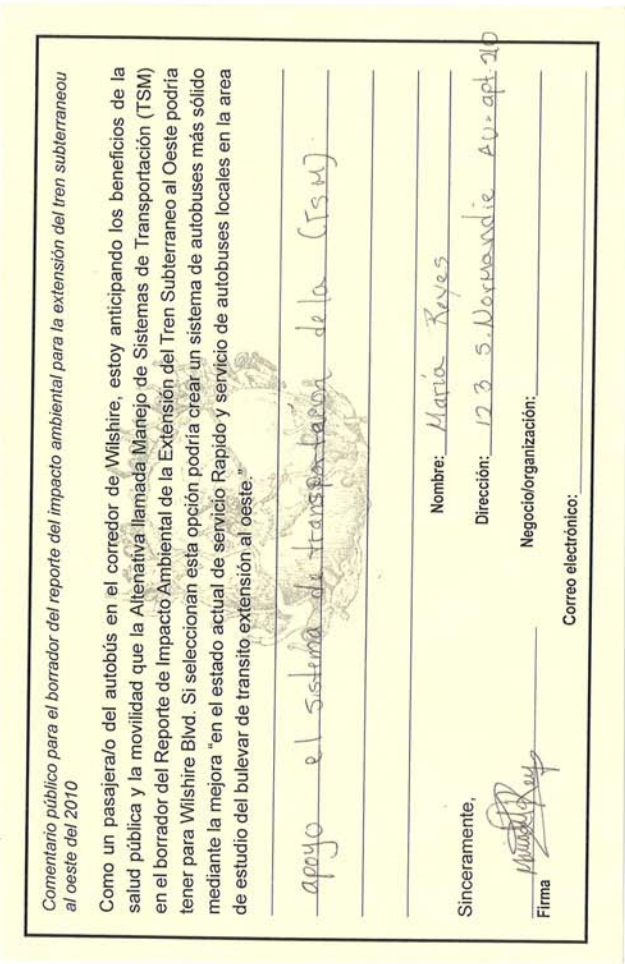 Comentario público para el borrador del reporte del impacto ambiental para la extensión del tren subterraneou
al oeste del 2010
Como un pasajera/o del autobús en el corredor de Wilshire, estoy anticipando los beneficios de la
salud pública y la movilidad que la Altenativa llamada Manejo de Sistemas de Transportación (TSM)
en el borrador del Reporte de Impacto Ambiental de la Extensión del Tren Subterraneo al Oeste podría
tener para Wilshire Blvd. Si seleccionan esta opción podría crear un sistema de autobuses más sólido
mediante la mejora "en el estado actual de servicio Rapido y servicio de autobuses locales en la area
de estudio del bulevar de transito extensión al oeste."
apoyo el sistema de transportación dela (TSM).
Sinceramente,
Nombre: María Reyes
Dirección: 123 S. Normandie AV. apt 210
Firma
Negocio/organización:
Correo electrónico: